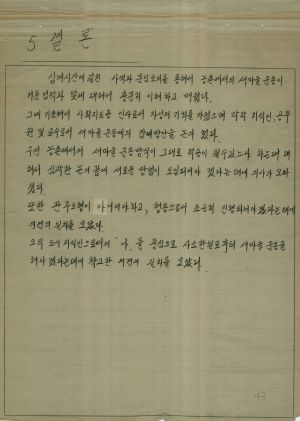 5 결 론
십여시간에 걸친 사색과 분임토의를 통해서 농촌에서의 새마을 운동이
거둔 업적과 맟에 대해서 충분히 이해하고 깨달았다.
그에 기초해서 사회지도층 인사로서 자성의 기회를 가졌으며 각각 지식인, 공무
원 및 교수로서 새마을 운동에의 참여방안을 논의 했다.
우선 농촌에서의 새마을 운동방식이 그대로 적용이 될수있느냐 하는데 대
해서 심각한 논의끝에 새로운 방법이 도입되어야 겠다는데 의사가 모아
졌다.
또한 관주도형이 아니어야하고, 행동으로서 조용히 진행되어야겠다는데에
의견의 일치를 보았다.
오직 도시 지식인으로서의 "나"를 중심으로 사소한일로부터 새마을 운동을
해야 겠다는데에 확고한 의견의 일치를 보았다.
43